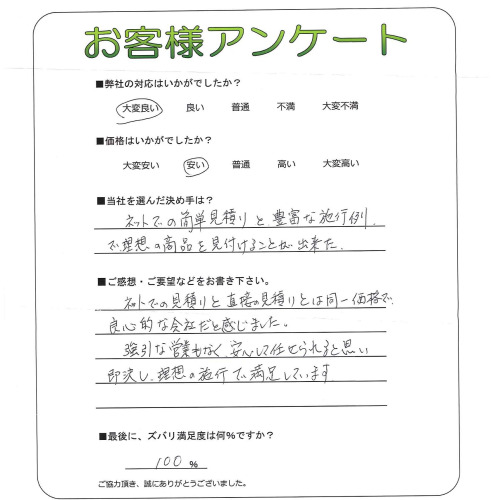 お客様アンケート
■弊社の対応はいかがでしたか?
大変良い 良い 普通 不満 大変不満
■価格はいかがでしたか?
大変安い 安い 普通 高い 大変高い
■当社を選んだ決め手は?
ネットでの簡単見積りと豊富な施行例、
で理想の商品を見付けることが出来た.
■ご感想・ご要望などをお書き下さい。
ネットでの見積りと直接の見積りとは同一価格で、
良心的な会社だと感じました。
強引な営業もなく、安心して任せられると思い
即決し、理想の施行で満足しています.
■最後に、ズバリ満足度は何%ですか?
100 %
ご協力頂き、誠にありがとうございました。